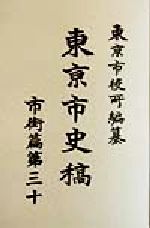 東京市役所編纂
東京市史稿
市街篇第三十